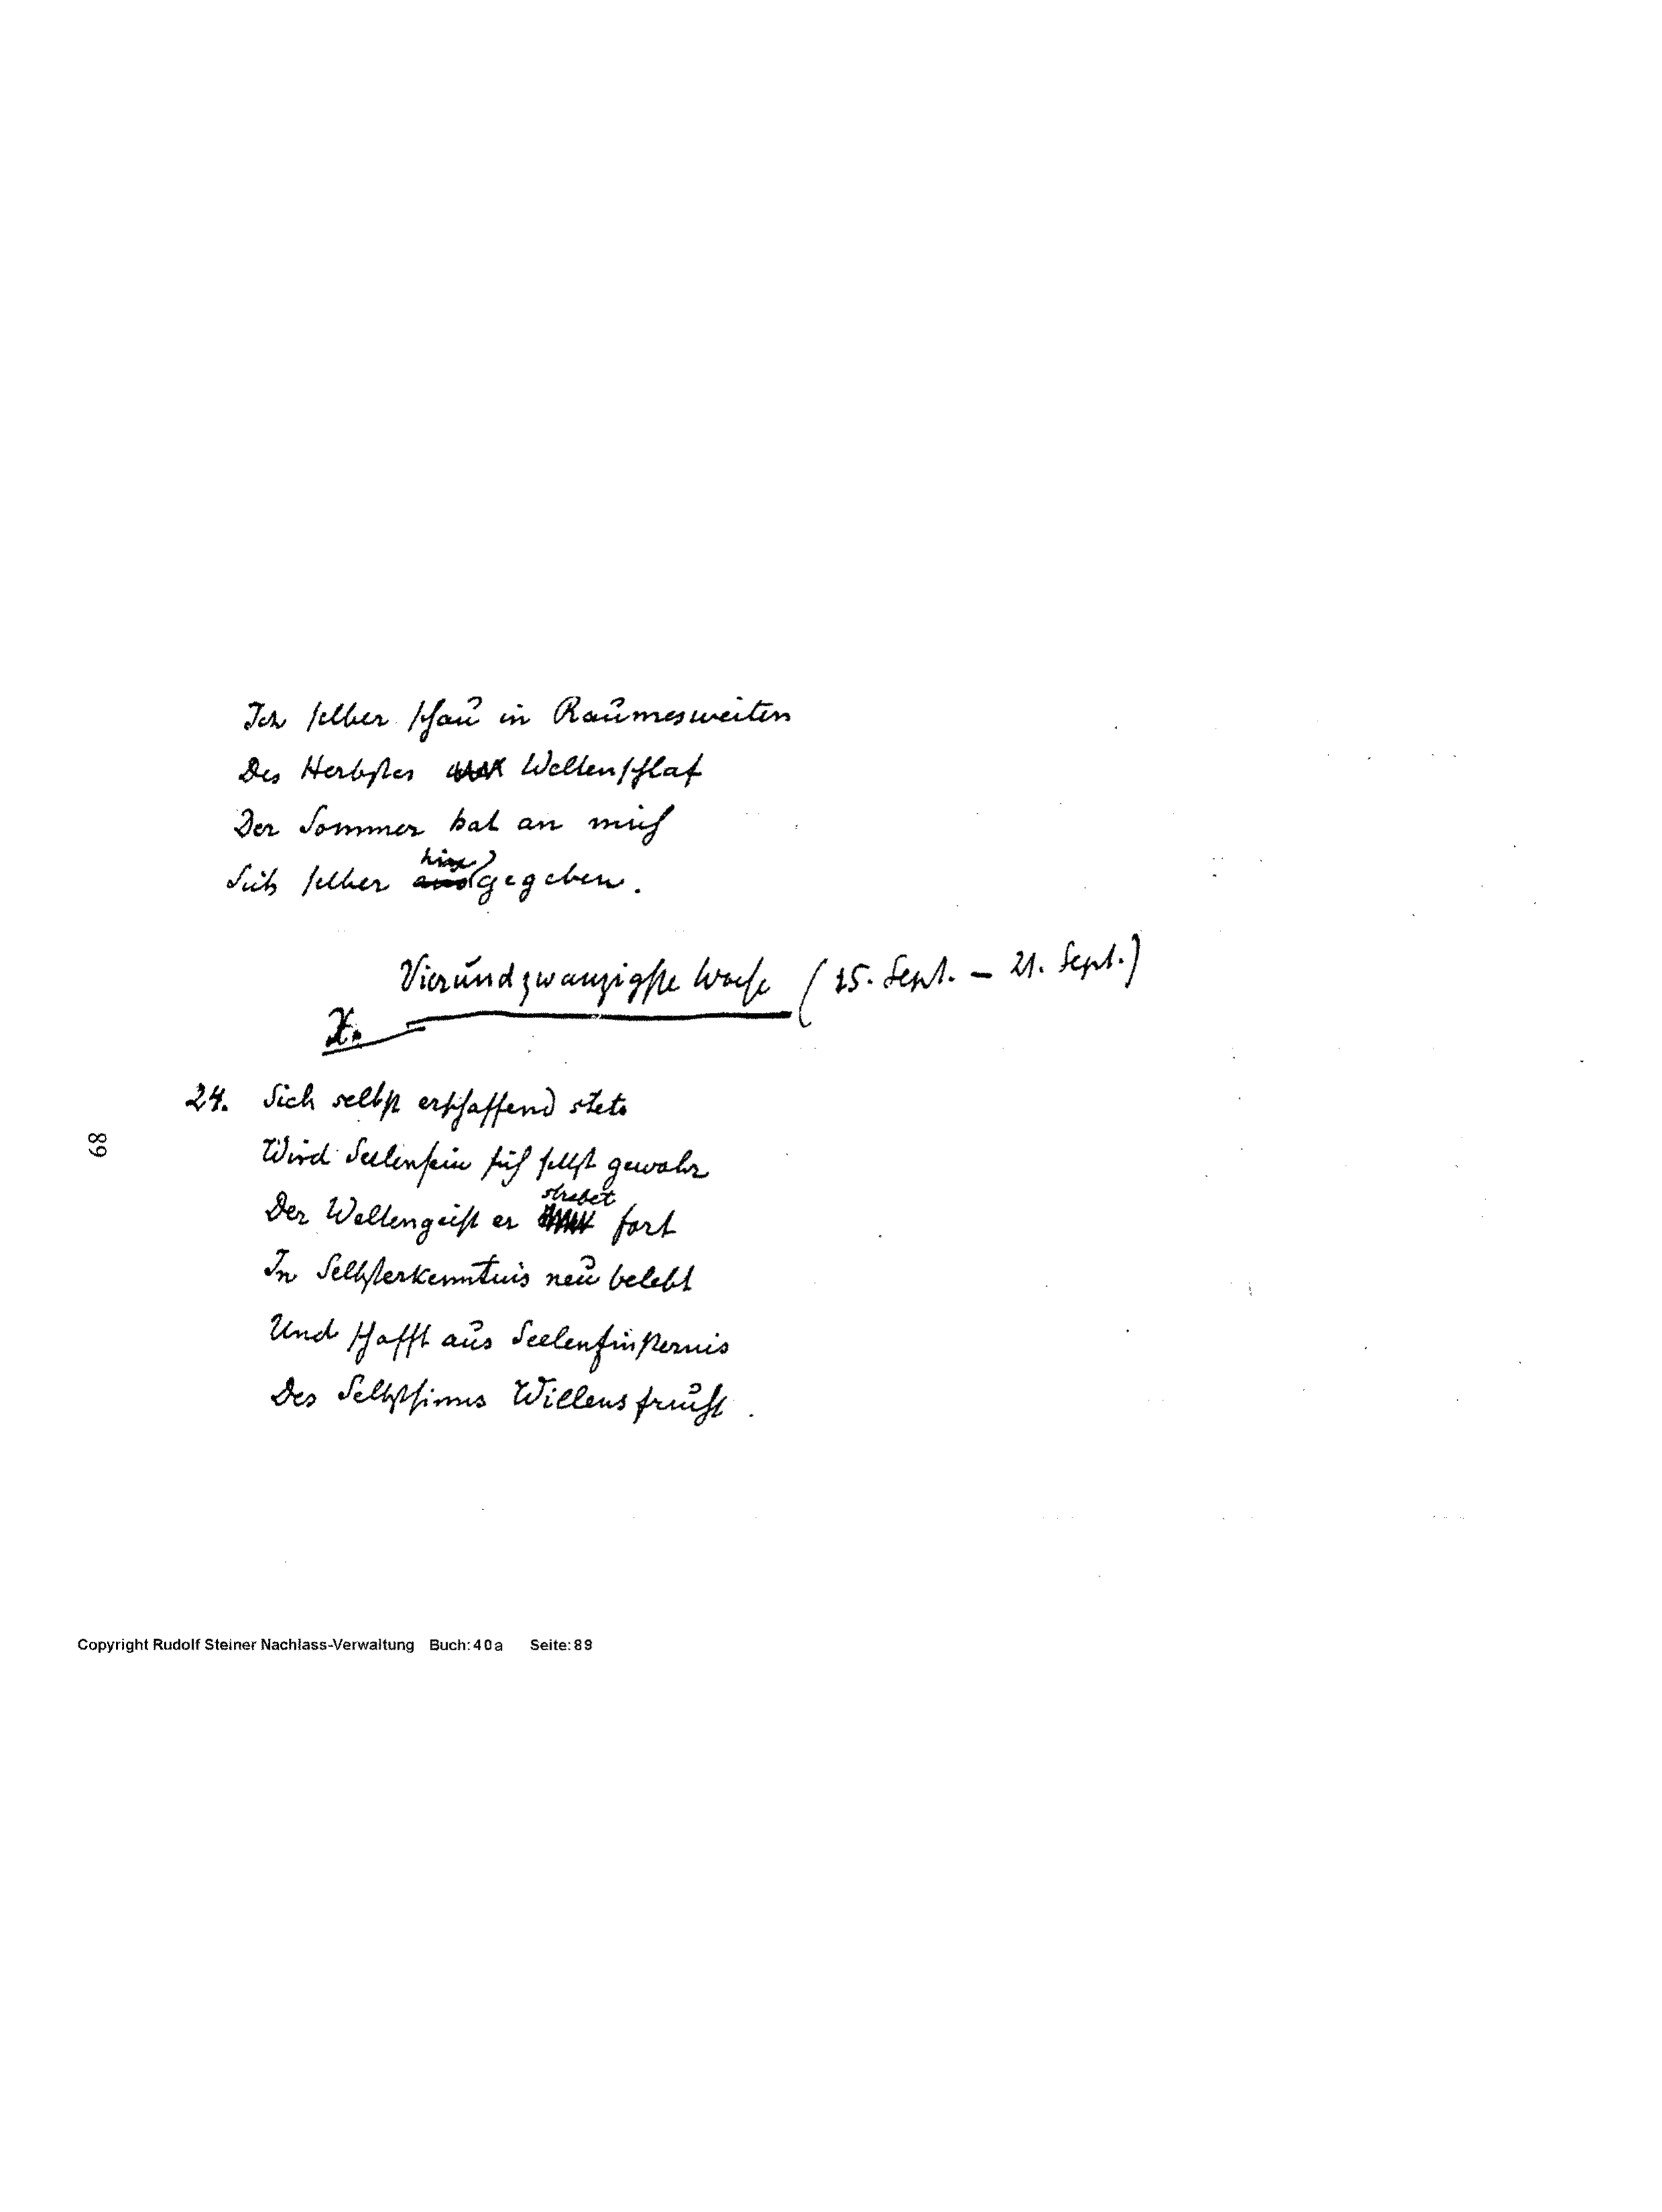 Ich selber schau in Raumesweiten
Des Herbstes Weltenschlaf
Der Sommer hat an mich
hin
Sich selber aus gegeben.
Vierundzwanzigste Woche (15. Sept. – 21. Sept.)
X.
24. Sich selbst erschaffend stets
Wird Seelensein sich selbst gewahr
strebet
Der Weltengeist er fort
In Selbsterkenntnis neu belebt
Und schafft aus Seelenfinsternis
Des Selbstsinns Willensfrucht.
89
Copyright Rudolf Steiner Nachlass-Verwaltung Buch: 40a Seite: 89